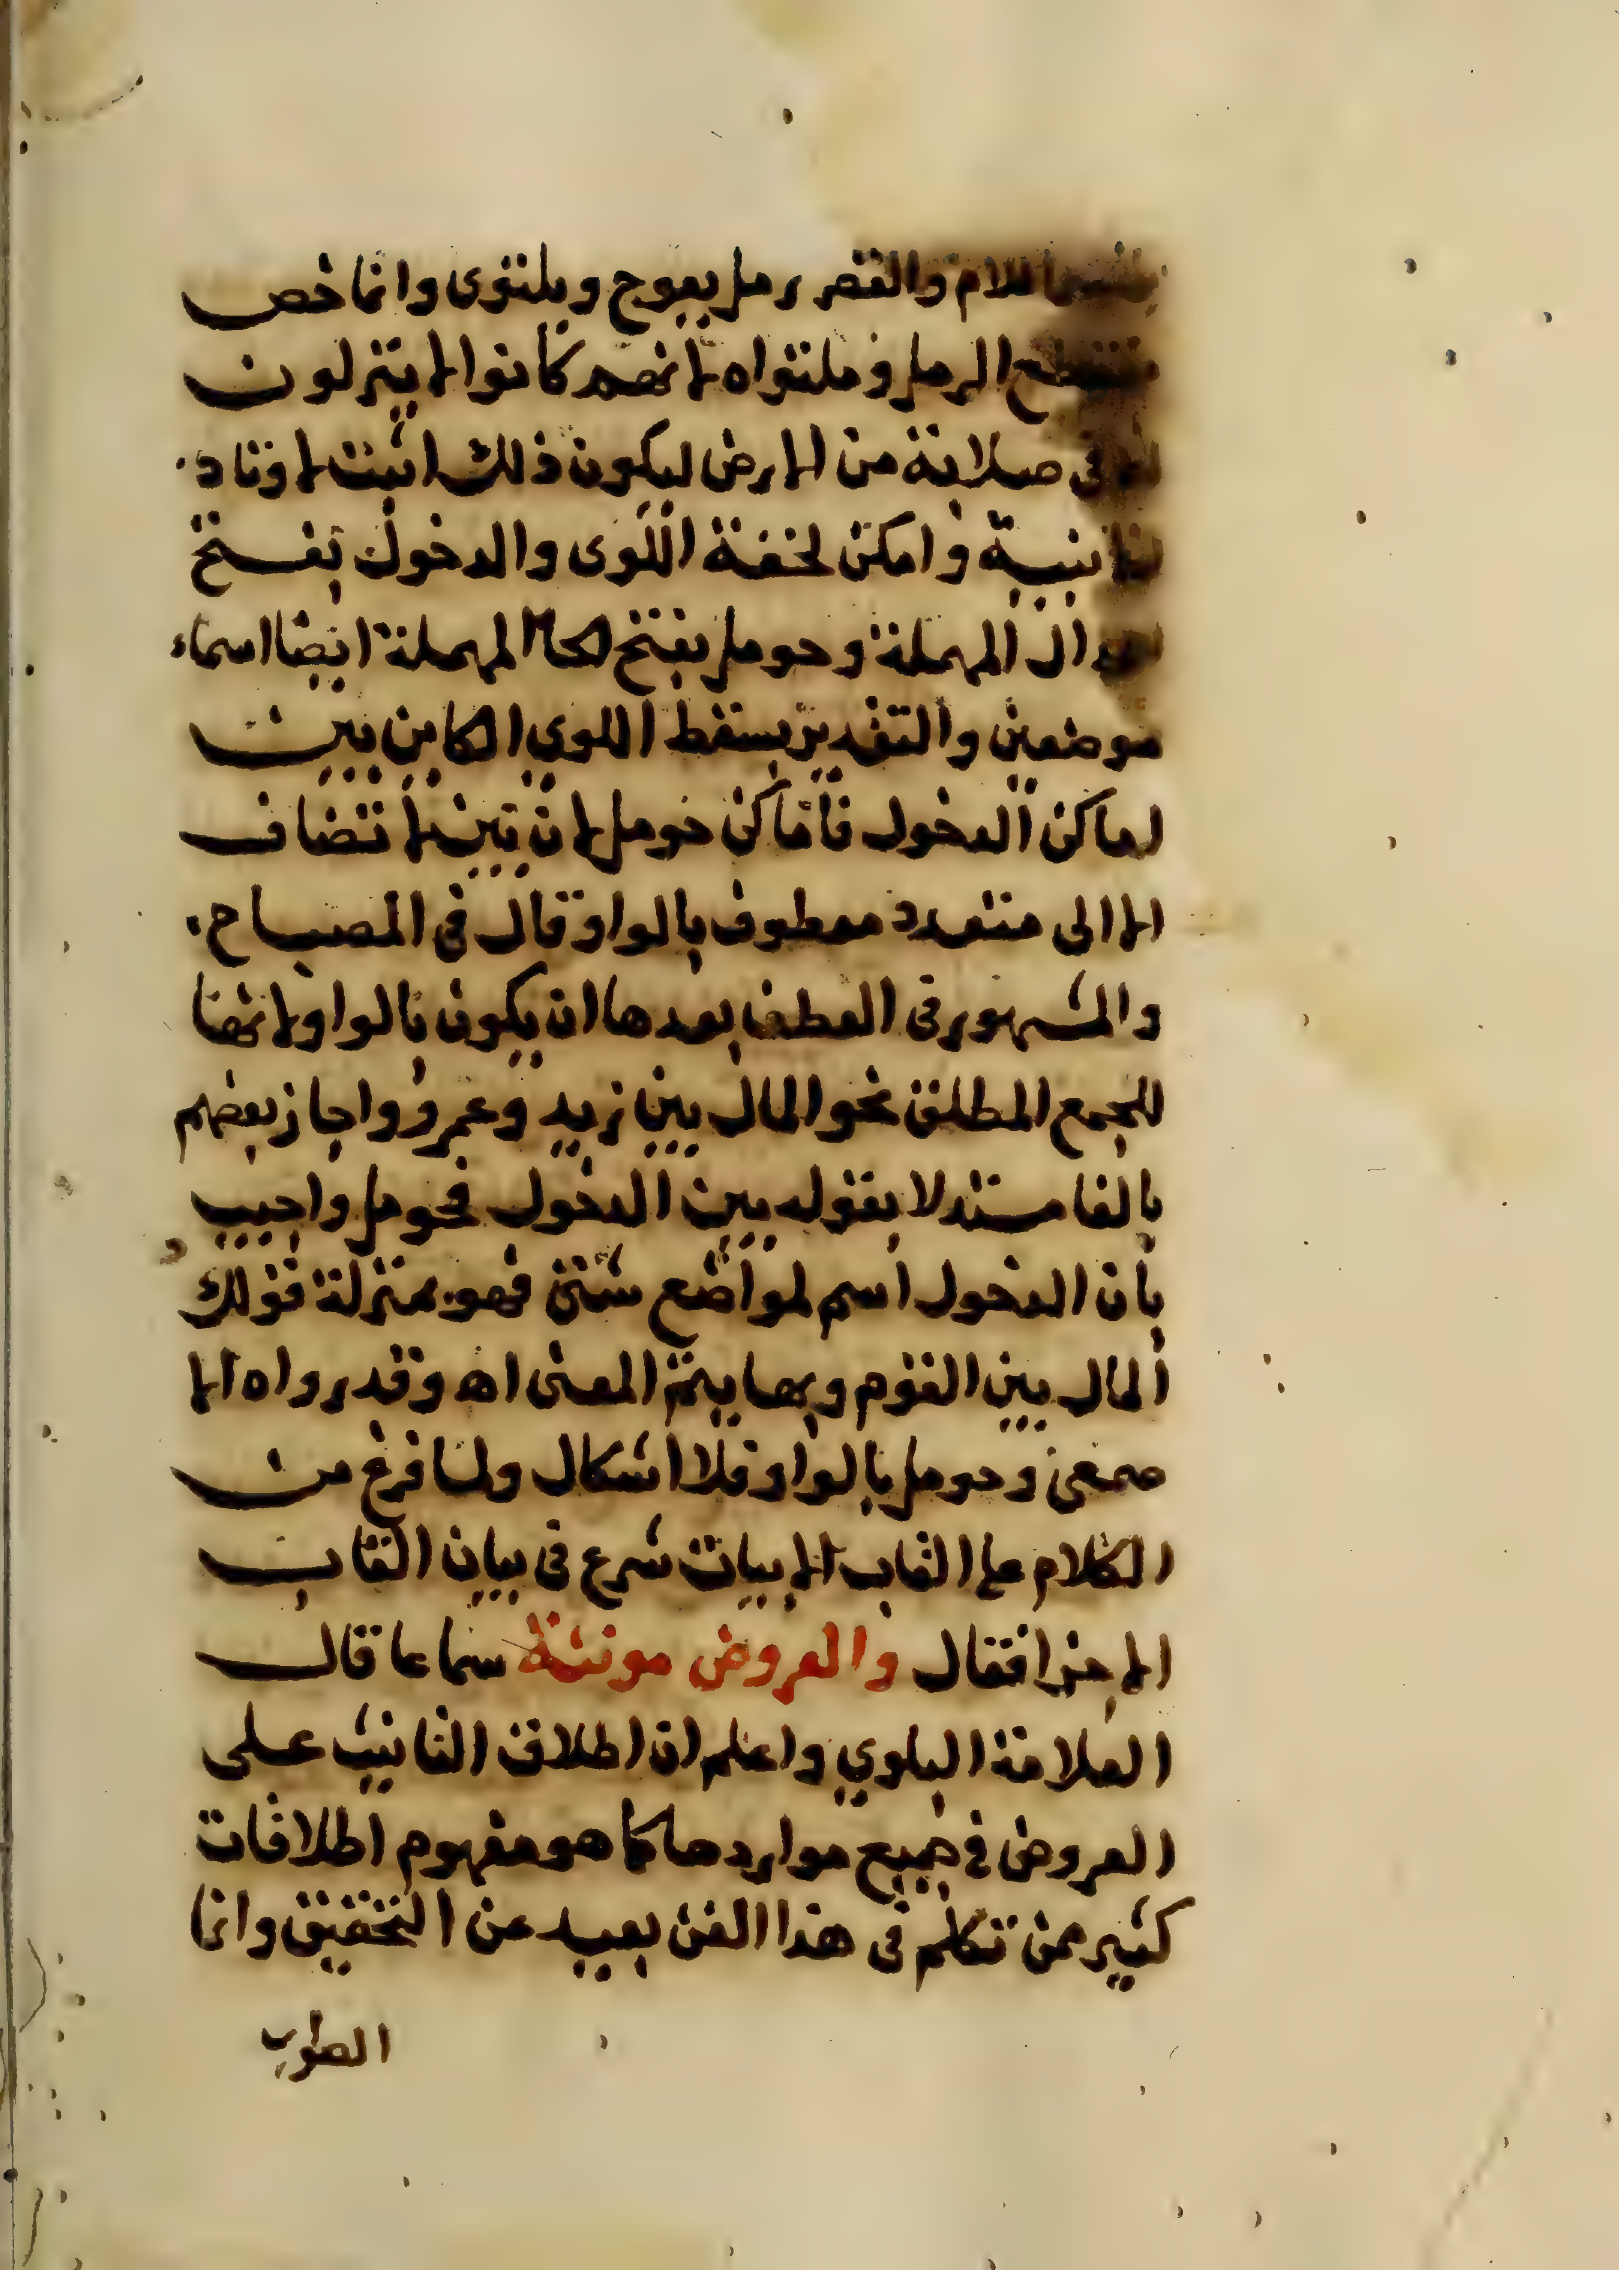 اللام والقصر رمل يعوج ويلتوى وانما خص
منقطع الرمل وملتواه لانهم كانوا لا ينزلون
فى صلابة من الارض ليكون ذلك اثبت لاوتاد
وامكن لحفنة اللوى والدخول بفتح
الدال المهملة وحومل بفتح الحا المهملة ايضا اسماء
موضعين والتقدير بسقط اللوي الكاين بين
اماكن الدخول فاماكن حومل لان بين لا تضاف
الا الى متعدد معطوف بالواو قال في المصباح
والمشهور فى العطف بعدها ان يكون بالواو لانها
للجمع المطلق نحو المال بين زيد وعمرو واجاز بعضهم
بالفا مستدلا بقوله بين الدخول فحومل واجيب
بان الدخول اسم لمواضع شتى فهو بمنزلة قولك
المال بين القوم وبها يتم المعنى اه وقد رواه الا
صمعى وحومل بالواو فلا اشكال ولما فرغ من
الكلام على القاب الابيات شرع فى بيان القاب
الاجزا فقال والعروض مونثة سماعا قال
العلامة البلوي واعلم ان اطلاق التانيث على
العروض في جميع مواردها كما هو مفهوم اطلاقات
كثير ممن تكلم فى هذا الفن بعيد عن التحقيق وانما
الصواب